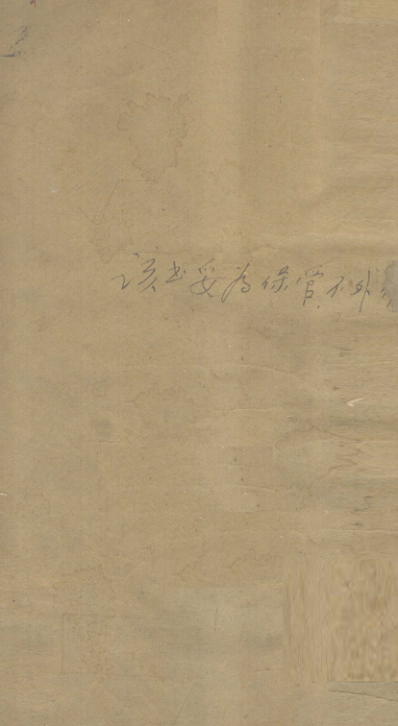 该书妥为保管不外